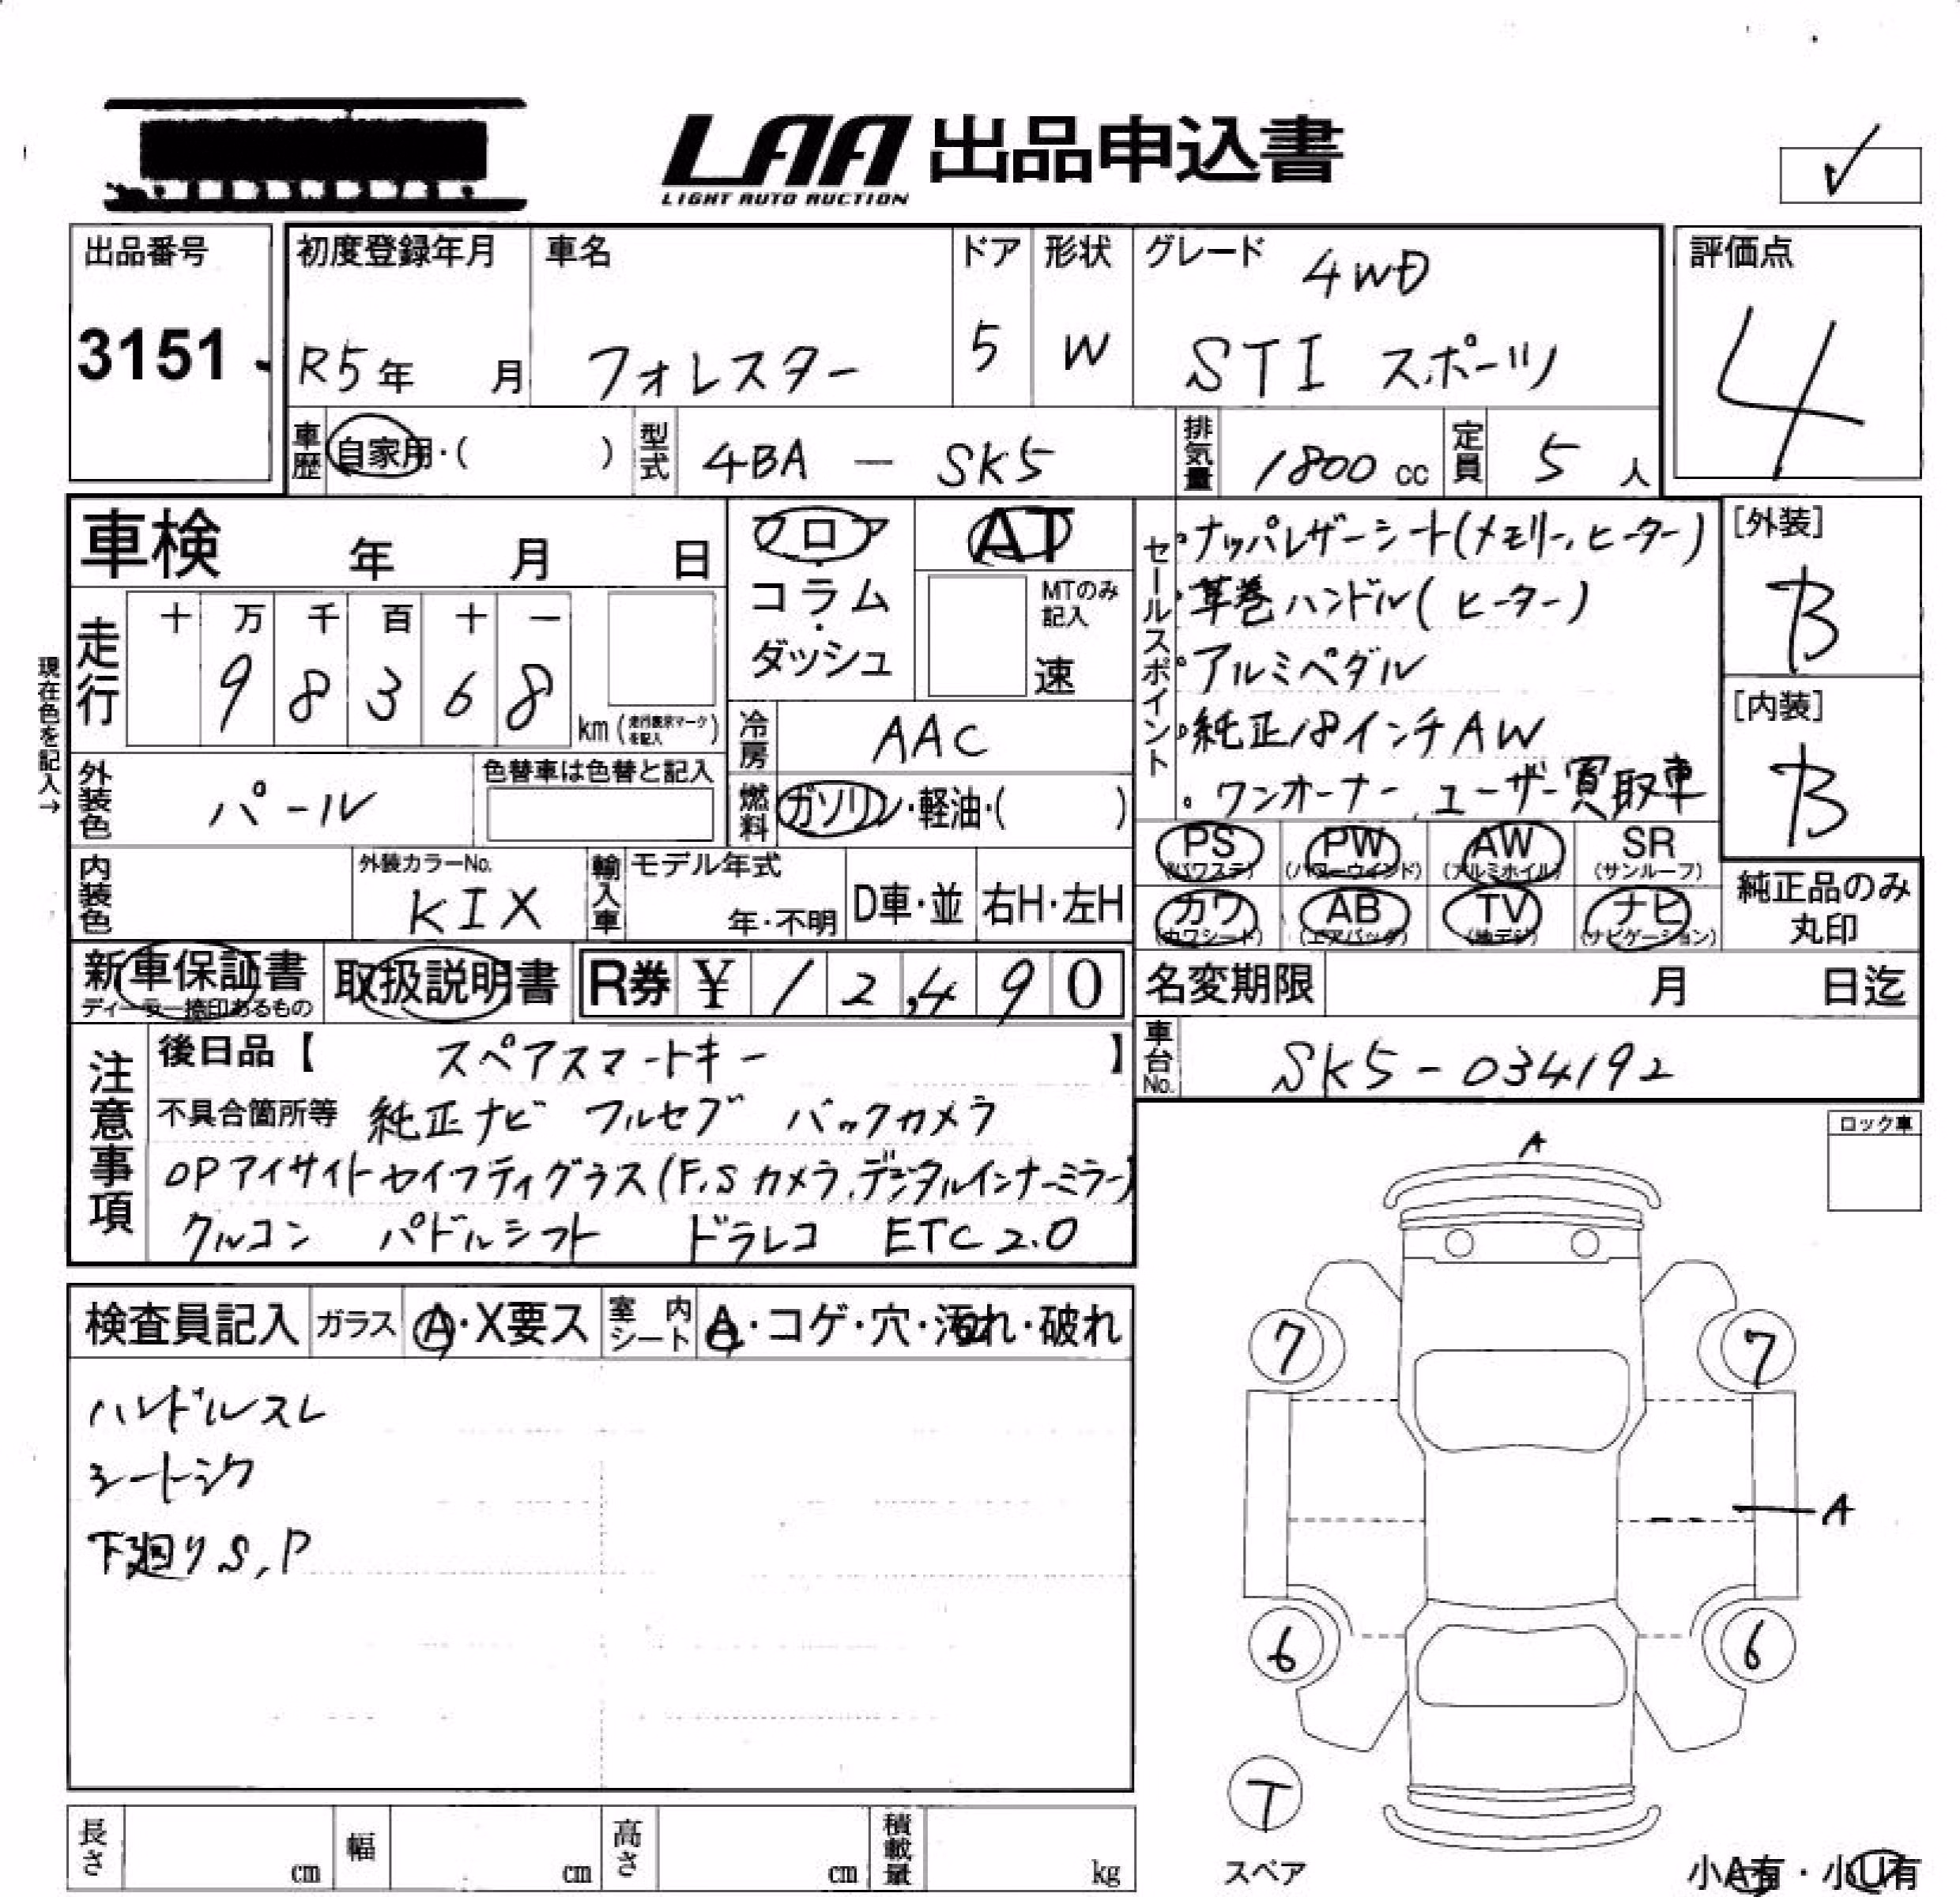 LAA 出品申込書
LIGHT AUTO AUCTION
✓
出品番号
3151
初度登録年月
R5年 月
車名
フォレスター
ドア
5
形状
W
グレード
4WD
STI スポーツ
評価点
4
車歴
自家用・( )
型式
4BA - SK5
排気量
1800 cc
定員
5 人
車検 年 月 日
フロア
コラム
・
ダッシュ
AT
MTのみ
記入
速
走行
十 万 千 百 十 一
9 8 3 6 8
km (走行表示マークを記入)
現在色を記入→
冷房
AAC
外装色
パール
色替車は色替と記入
燃料
ガソリン・軽油・( )
セールスポイント
・ナッパレザーシート(メモリー、ヒーター)
・革巻ハンドル(ヒーター)
・アルミペダル
・純正18インチAW
・ワンオーナー、ユーザー買取車
[外装]
B
[内装]
B
内装色
外装カラーNo.
KIX
輸入車
モデル年式
年・不明
D車・並
右H・左H
PS
(パワステ)
PW
(パワーウインド)
AW
(アルミホイル)
SR
(サンルーフ)
カワ
(カワシート)
AB
(エアバッグ)
TV
(地デジ)
ナビ
(ナビゲーション)
純正品のみ
丸印
新車保証書
ディーラー捺印あるもの
取扱説明書
R券 ¥ 12,490
名変期限 月 日迄
車台No.
SK5-034192
注意事項
後日品【 スペアスマートキー 】
不具合箇所等 純正ナビ フルセグ バックカメラ
OPアイサイトセイフティプラス(F,Sカメラ、デジタルインナーミラー)
クルコン パドルシフト ドラレコ ETC2.0
ロック車
検査員記入
ガラス
A・X要ス
室内シート
A・コゲ・穴・汚れ・破れ
ハンドルスレ
シートシワ
下廻りS,P
A
7
7
A
6
6
T
スペア
長さ cm
幅 cm
高さ cm
積載量 kg
小A有・小U有